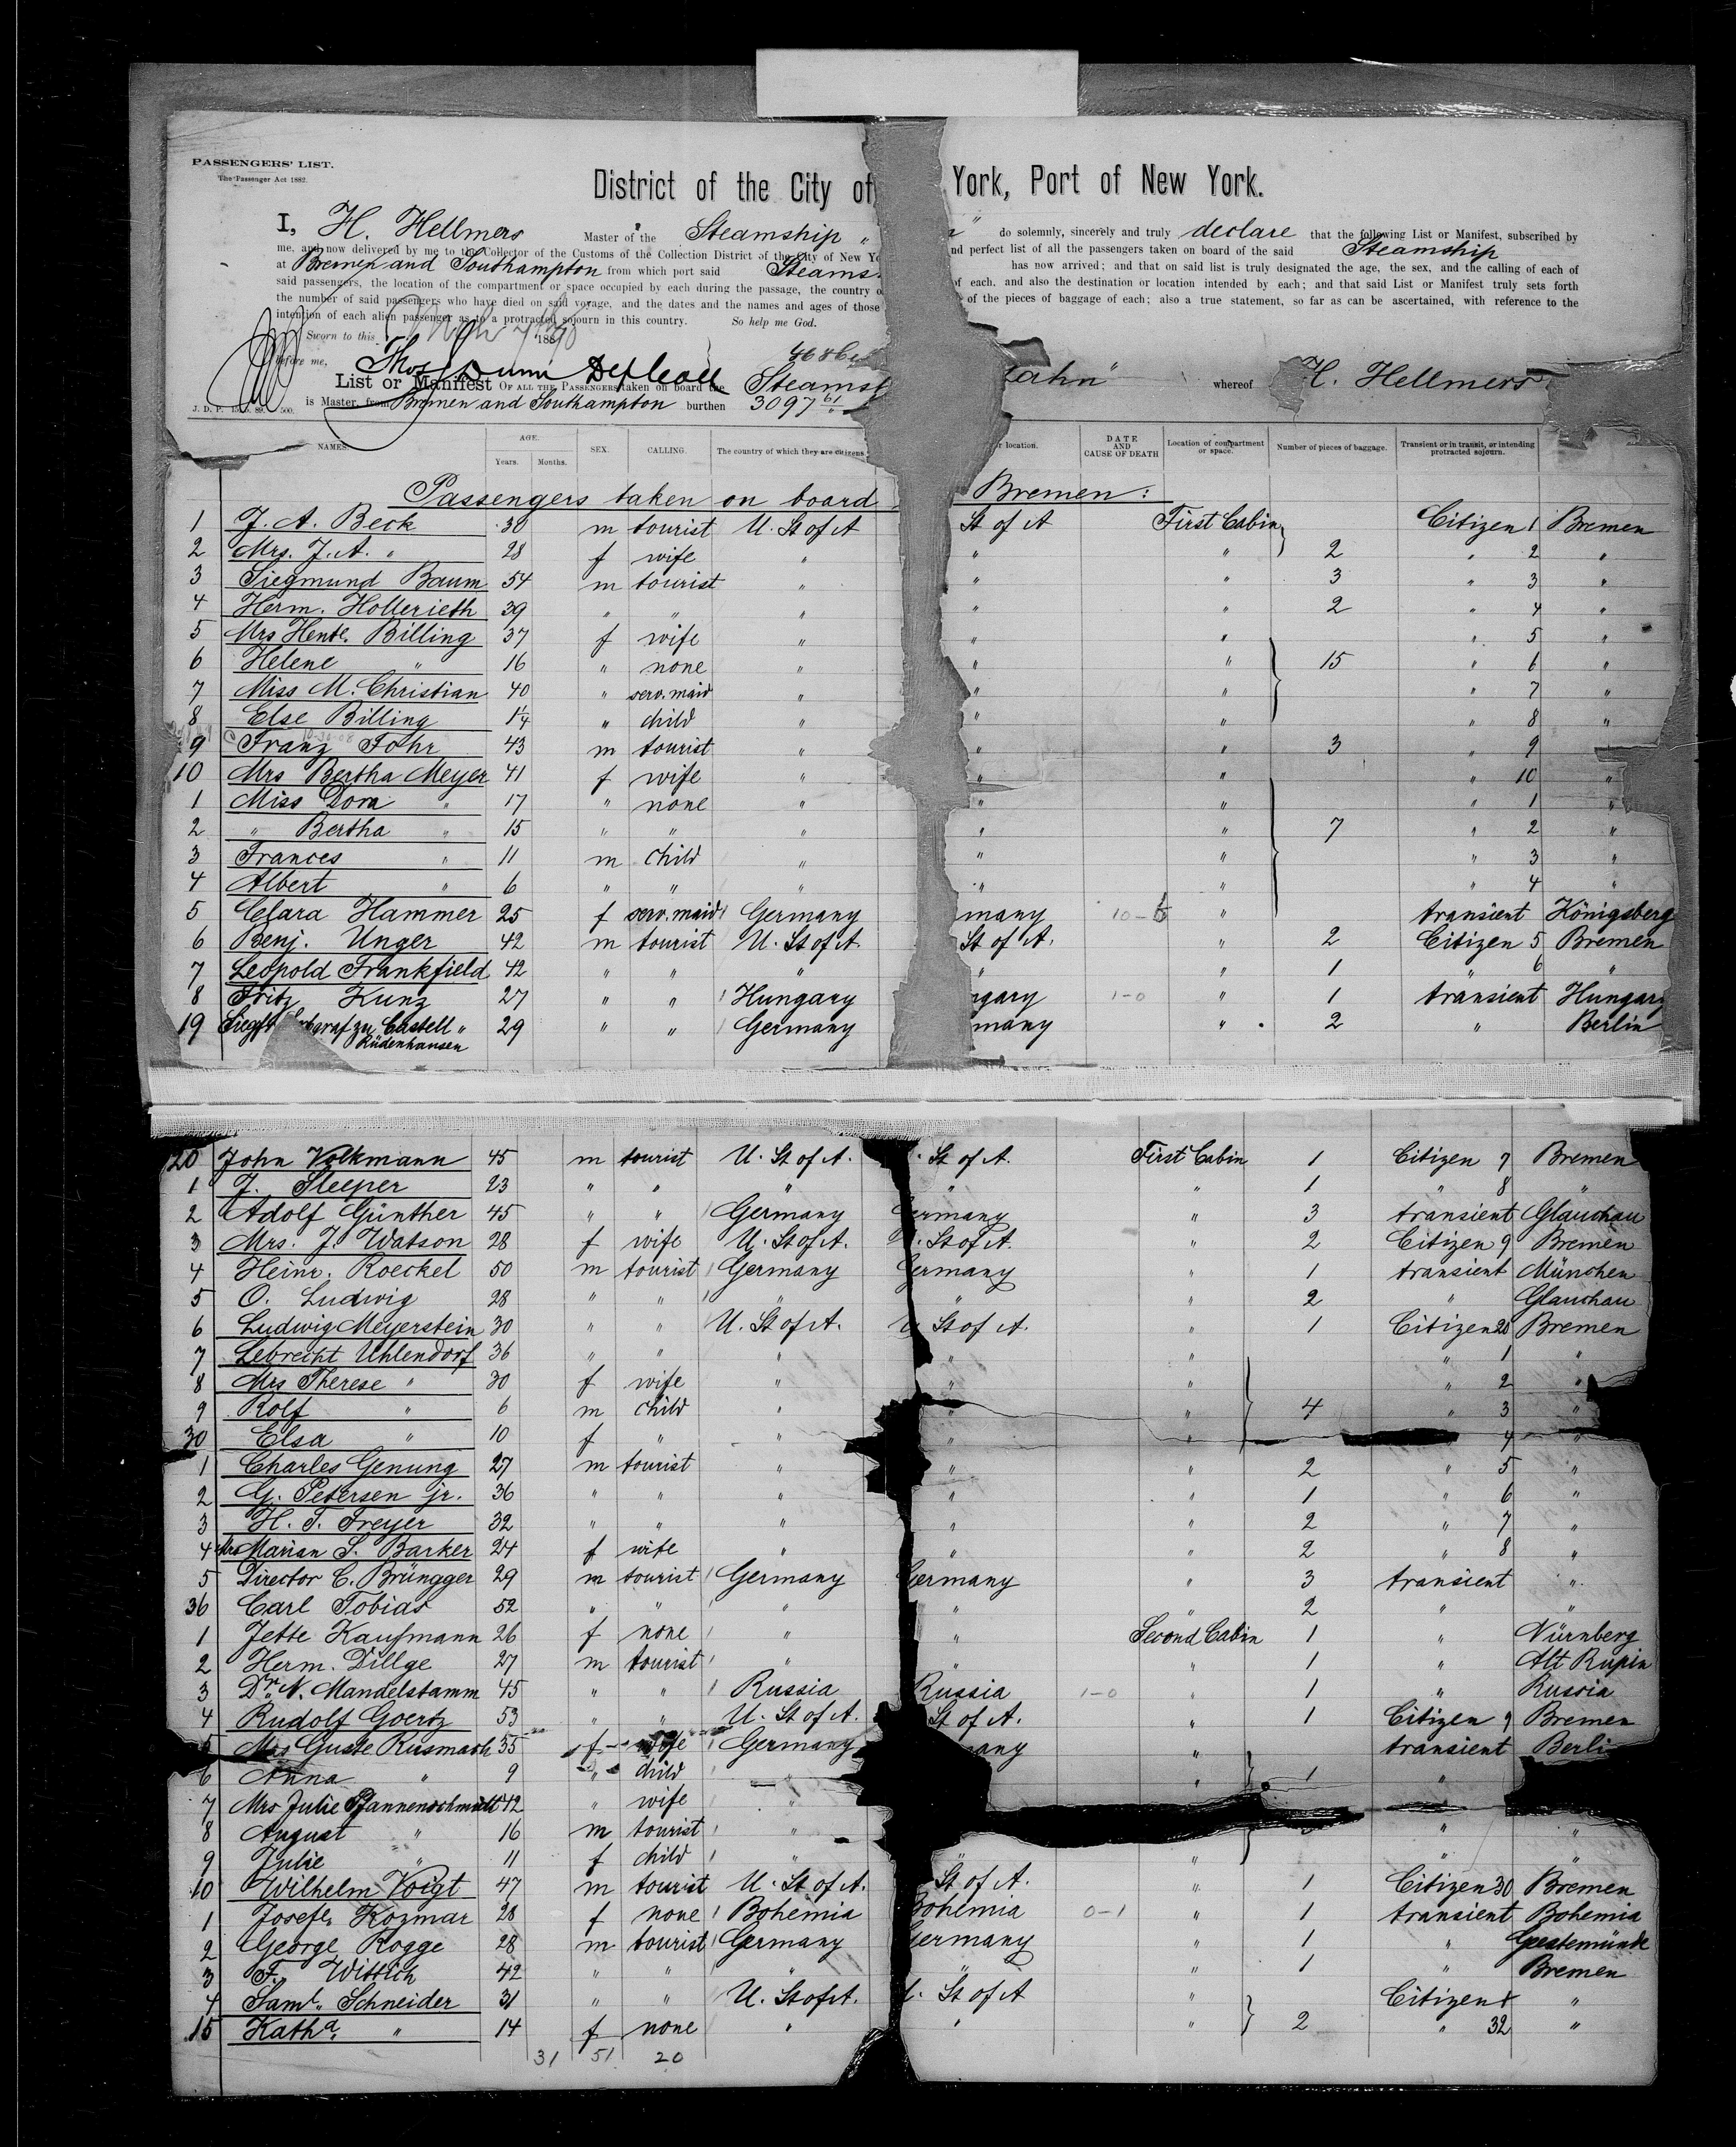 PASSENGERS' LIST.
The Passenger Act 1882.
District of the City of York, Port of New York.
I, H. Hellmers Master of the Steamship " " do solemnly, sincerely and truly declare that the following List or Manifest, subscribed by
me, and now delivered by me to the Collector of the Customs of the Collection District of the City of New nd perfect list of all the passengers taken on board of the said Steamship
at Bremen and Southampton from which port said Steams has now arrived; and that on said list is truly designated the age, the sex, and the calling of each of
said passengers, the location of the compartment or space occupied by each during the passage, the country of each, and also the destination or location intended by each; and that said List or Manifest truly sets forth
the number of said passengers who have died on said voyage, and the dates and the names and ages of those of the pieces of baggage of each; also a true statement, so far as can be ascertained, with reference to the
intention of each alien passenger as to a protracted sojourn in this country. So help me God.
Sworn to this 188
before me, Thos Dunn
List or Manifest OF ALL THE PASSENGERS taken on board the Steams ahn" whereof H. Hellmers
is Master, from Bremen and Southampton burthen 3097 61
J. D. P. 89. 500.
NAMES. AGE. Years. Months. SEX. CALLING. The country of which they are citizens r location. DATE AND CAUSE OF DEATH Location of compartment or space. Number of pieces of baggage. Transient or in transit, or intending protracted sojourn.
Passengers taken on board Bremen:
1 J. A. Beck 30 m tourist U. St of A St of A First Cabin Citizen 1 Bremen
2 Mrs. J. A. " 28 f wife " " " 2 " 2 "
3 Siegmund Baum 54 m tourist " " " 3 " 3 "
4 Herm. Hollerieth 39 " " " " " 2 " 4 "
5 Mrs Hente. Billing 37 f wife " " " " 5 "
6 Helene " 16 " none " " " 15 " 6 "
7 Miss M. Christian 40 " serv. maid " " " " 7 "
8 Else Billing 1¼ " child " " " " 8 "
9 Franz Fohr 43 m tourist " " " 3 " 9 "
10 Mrs Bertha Meyer 41 f wife " " " " 10 "
1 Miss Dora " 17 " none " " " " 1 "
2 " Bertha " 15 " " " " " 7 " 2 "
3 Frances " 11 m child " " " " 3 "
4 Albert " 6 " " " " " " 4 "
5 Clara Hammer 25 f serv. maid Germany many 10- " transient Königsberg
6 Benj. Unger 42 m tourist U. St of A. St of A. " 2 Citizen 5 Bremen
7 Leopold Frankfield 42 " " " " " 1 " 6 "
8 Fritz Kunz 27 " " Hungary ngary 1-0 " 1 transient Hungary
19 Siegfr graf zu Castell " 29 " " Germany many " 2 " Berlin
Rüdenhausen
20 John Volkmann 45 m tourist U. St of A. St of A. First Cabin 1 Citizen 7 Bremen
1 J. Sleeper 23 " " " " " 1 " 8 "
2 Adolf Günther 45 " " Germany ermany " 3 transient Glauchau
3 Mrs. J. Watson 28 f wife U. St of A. St of A. " 2 Citizen 9 Bremen
4 Heinr. Roeckel 50 m tourist Germany Germany " 1 transient München
5 O. Ludwig 28 " " " " " 2 " Glauchau
6 Ludwig Meyerstein 30 " " U. St of A. U St of A. " 1 Citizen 20 Bremen
7 Lebrecht Uhlendorf 36 " " " " " " 1 "
8 Mrs Therese " 30 f wife " " " " 2 "
9 Rolf " 6 m child " " " 4 " 3 "
30 Elsa " 10 f " " " " 4 "
1 Charles Genung 27 m tourist " " " 2 " 5 "
2 G. Petersen jr. 36 " " " " " 1 " 6 "
3 H. T. Freyer 32 " " " " " 2 " 7 "
4 Mrs Marian S. Barker 24 f wife " " " 2 " 8 "
5 Director C. Brüngger 29 m tourist Germany Germany " 3 transient "
36 Carl Tobias 52 " " " " " 2 " "
1 Jette Kaufmann 26 f none " " Second Cabin 1 " Nürnberg
2 Herm. Dillge 27 m tourist " " " 1 " Alt Rupin
3 Dr. N. Mandelstamm 45 " " Russia Russia 1-0 " 1 " Russia
4 Rudolf Goertz 53 " " U. St of A. St of A. " 1 Citizen 9 Bremen
5 Mrs Guste Rusmach 35 f wife Germany many " transient Berli
6 Anna " 9 " child " " 1 "
7 Mrs Julie Pfannenschmidt 42 " wife "
8 August " 16 m tourist " " "
9 Julie " 11 f child " " " "
10 Wilhelm Voigt 47 m tourist U. St of A. St of A. " 1 Citizen 30 Bremen
1 Josefe. Kozmar 28 f none Bohemia Bohemia 0-1 " 1 transient Bohemia
2 George Rogge 28 m tourist Germany Germany " 1 " Geestemünde
3 F. Wittich 42 " " " " " 1 " Bremen
4 Saml. Schneider 31 " " U. St of A. St of A " Citizen "
15 Katha. " 14 f none " " " 2 " 32 "
31 51 20